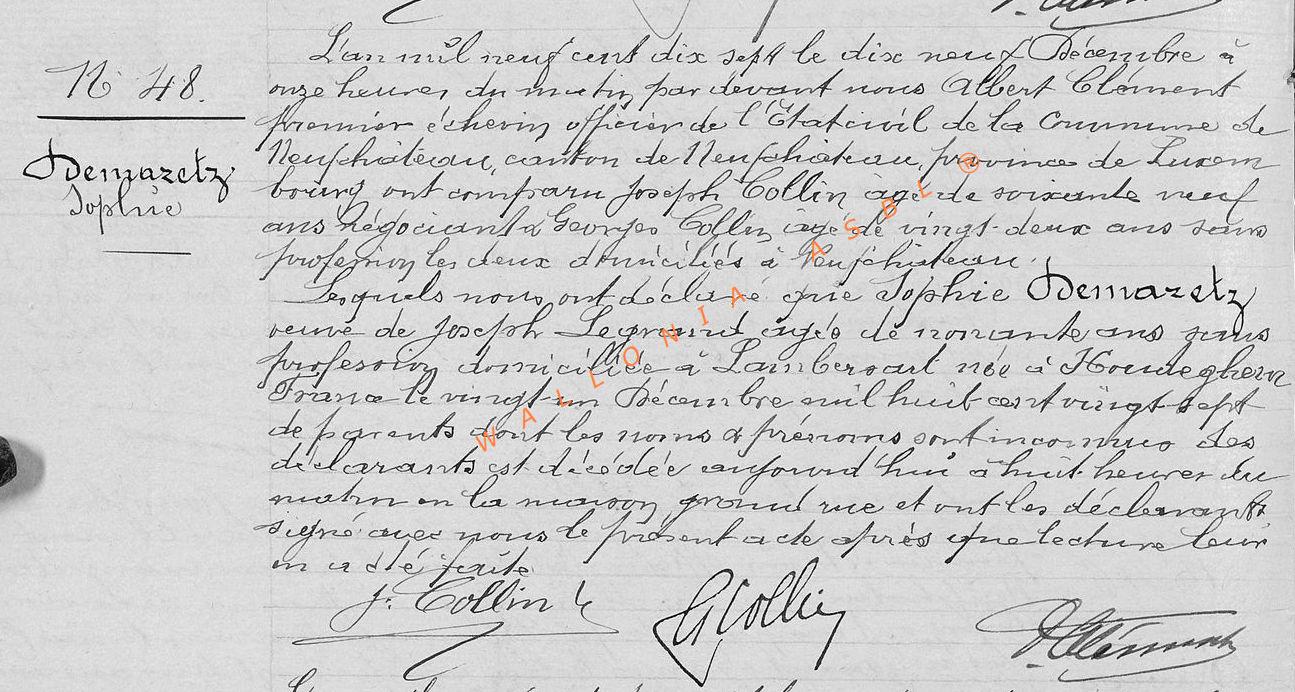 N° 48.
Demazetz
Sophie
L'an mil neuf cent dix sept le dix neuf Décembre à
onze heures du matin par devant nous Albert Clément
premier échevin officier de l'Etat civil de la Commune de
Neufchâteau, canton de Neufchâteau, province de Luxem
bourg ont comparu Joseph Collin âgé de soixante neuf
ans négociant & Georges Collin âgé de vingt-deux ans sans
profession les deux domiciliés à Neufchâteau.
Lesquels nous ont déclaré que Sophie Demazetz
veuve de Joseph Legrand âgée de nonante ans sans
profession domiciliée à Lambersart née à Hondeghem
France le vingt un Décembre mil huit cent vingt-sept
de parents dont les noms & prénoms sont inconnus des
déclarants est décédée aujourd'hui à huit heures du
matin en la maison, grand rue et ont les déclarants
signé avec nous le présent acte après que lecture leur
en a été faite
J. Collin
G Collin
A. Clément
WALLONIA ASBL ®